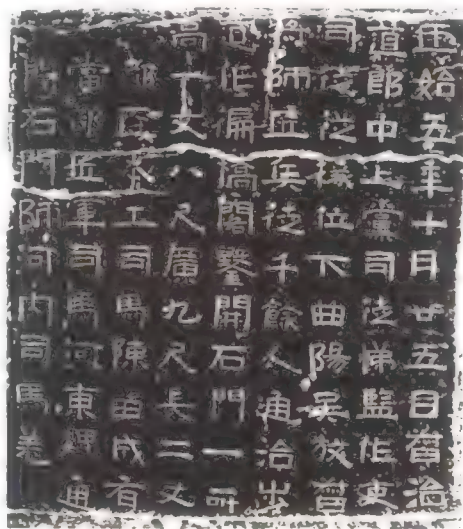 正始五年十月廿五日督治
道郎中上黨司徒悌監作吏
司徒從掾位下曲陽吳放督
將師匠兵徒千餘人通治步
道作偏橋閣鑿開石門一所
高一丈八尺廣九尺長二丈
都匠木工司馬陳留成有
當部匠軍司馬河東魏通
開石門師河內司馬羌